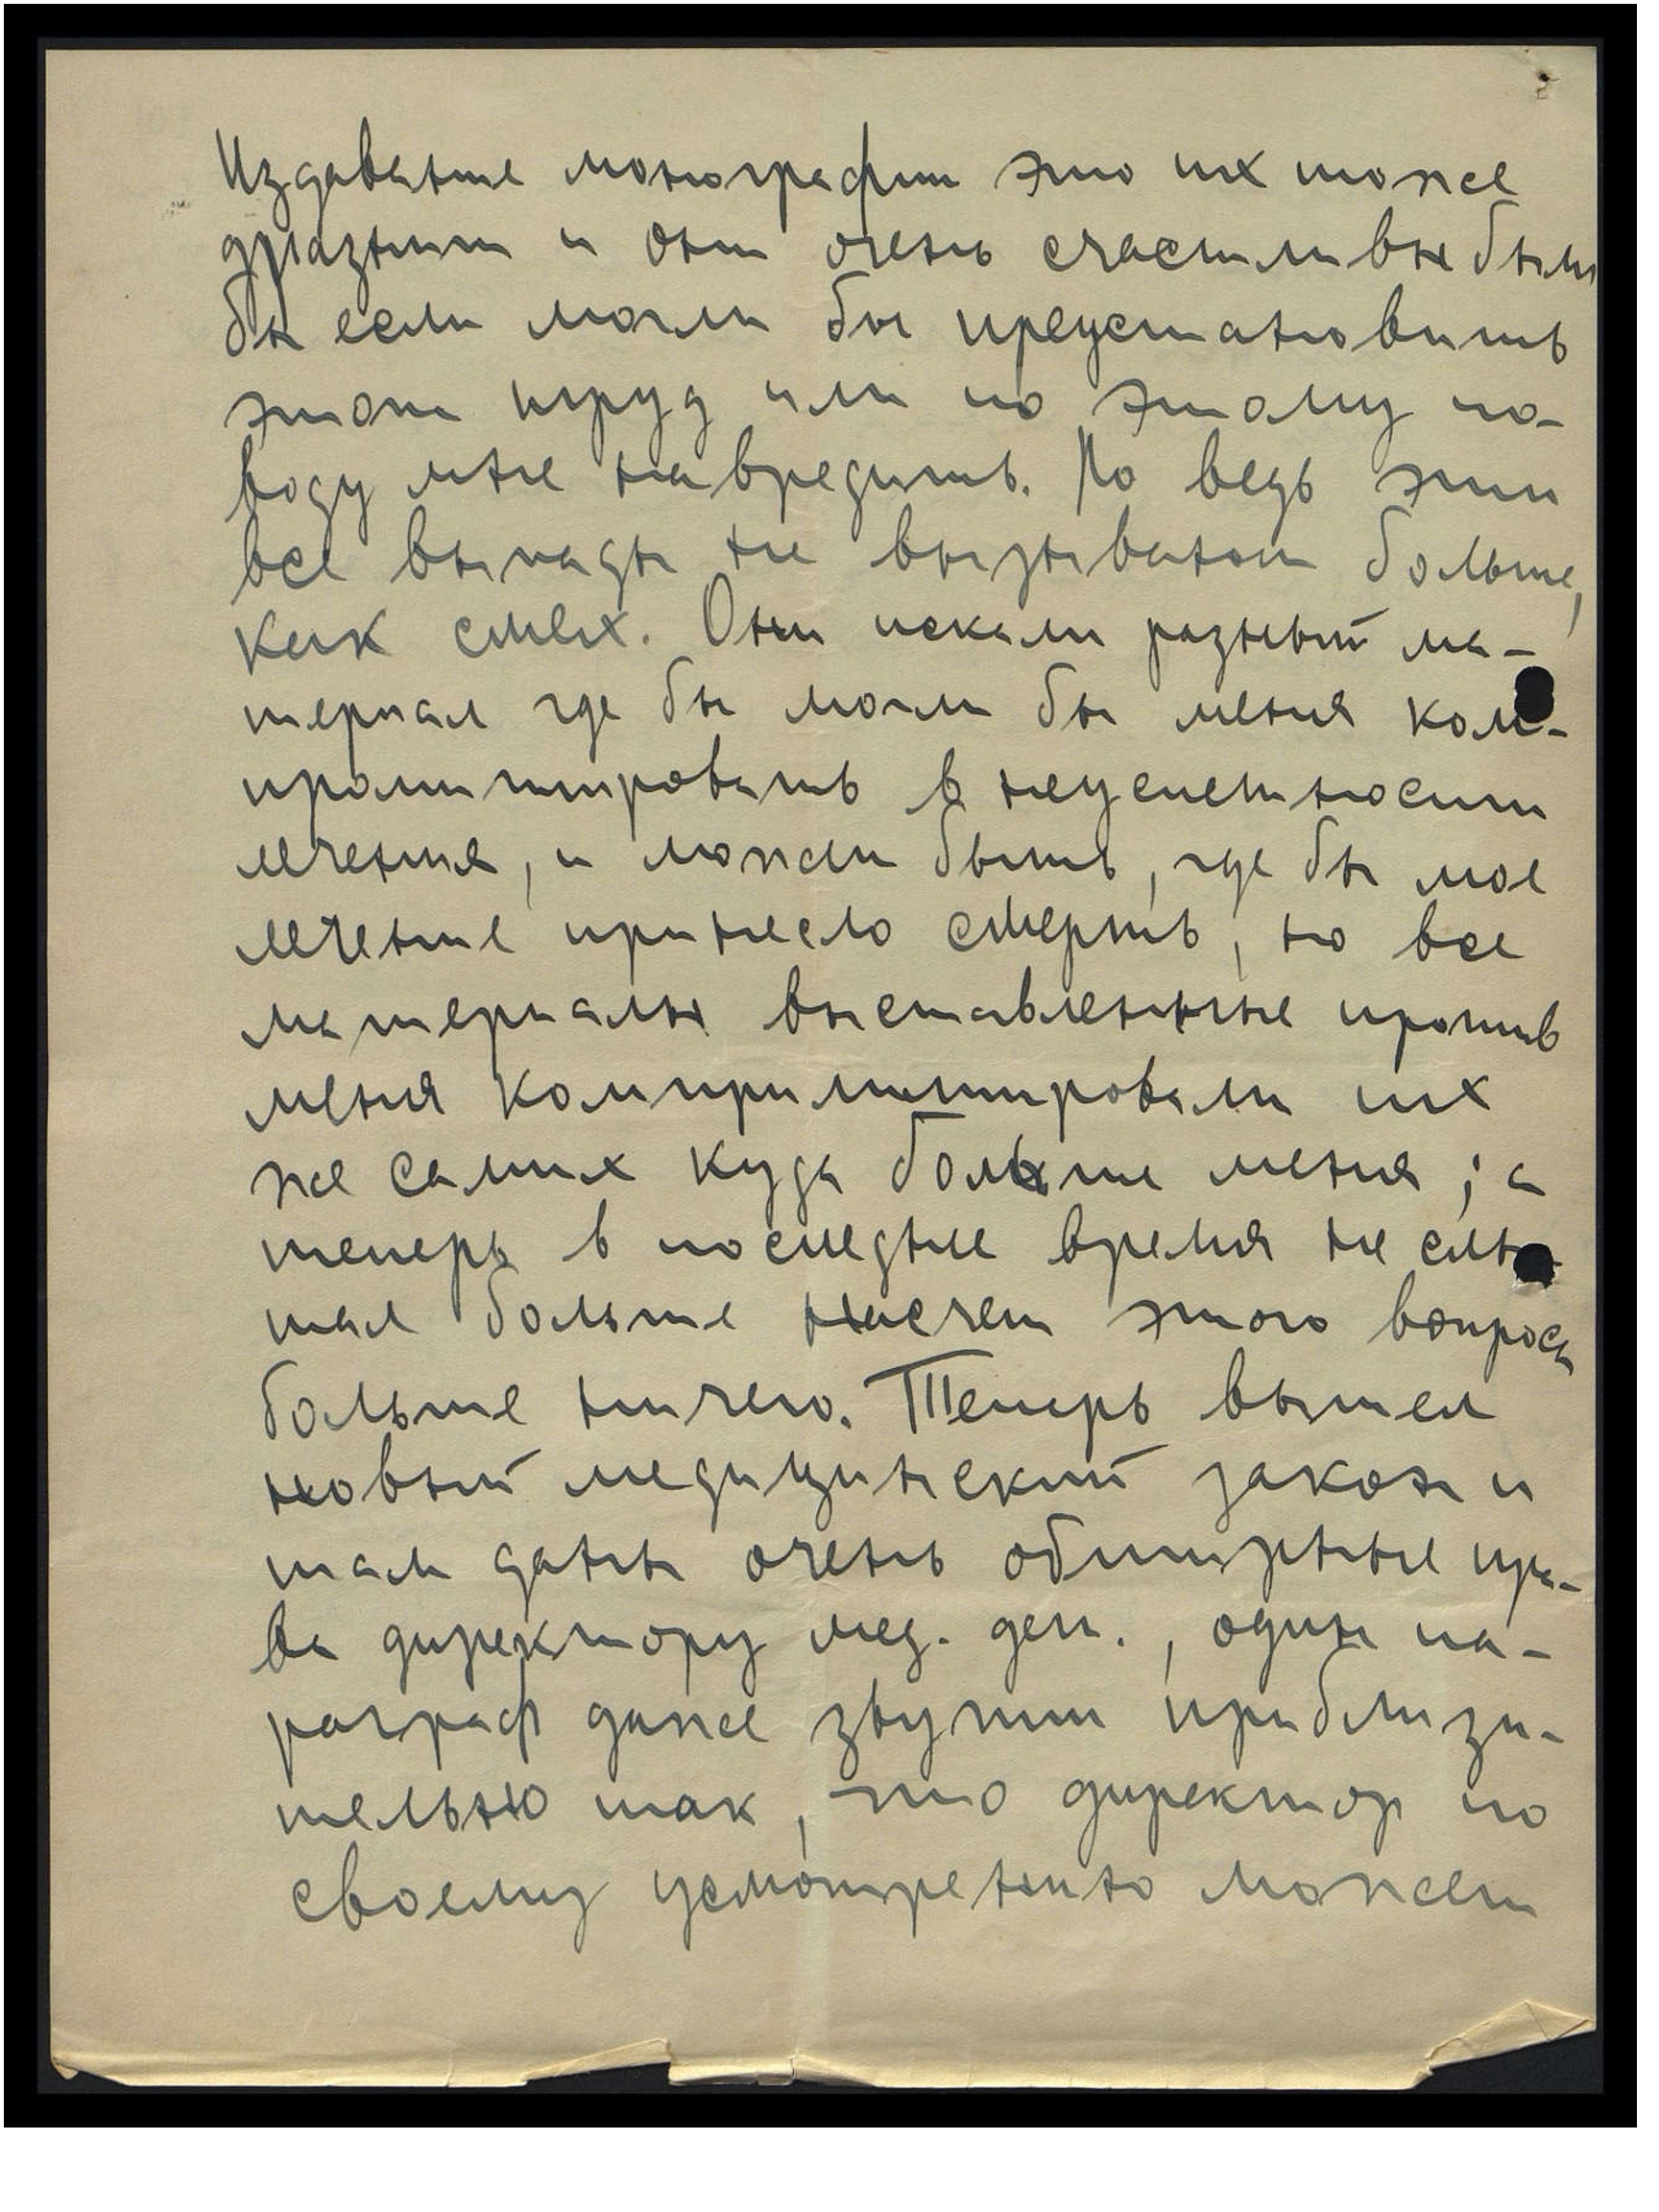 Издаватие монографии это их тоже
дразнит и они очень счастливы были
бы если могли бы преустановить
этот труд или по этому по-
воду мне навредить. Но ведь эти
все выпады не вызывают больше,
как смех. Они искали разный ма-
териал где бы могли бы меня ком-
промитировать в неуспешности
лечения, и может быть, где бы мое
лечение принесло смерть, но все
материалы выставленные против
меня компримитировали их
же самих куда больше меня; а
теперь в последнее время не слы-
шал больше насчет этого вопроса
больше ничего. Теперь вышел
новый медицинский закон и
там даны очень обширные пра-
ва директору мед. деп., один па-
раграф даже звучит приблизи-
тельно так, что директор по
своему усмотрению может